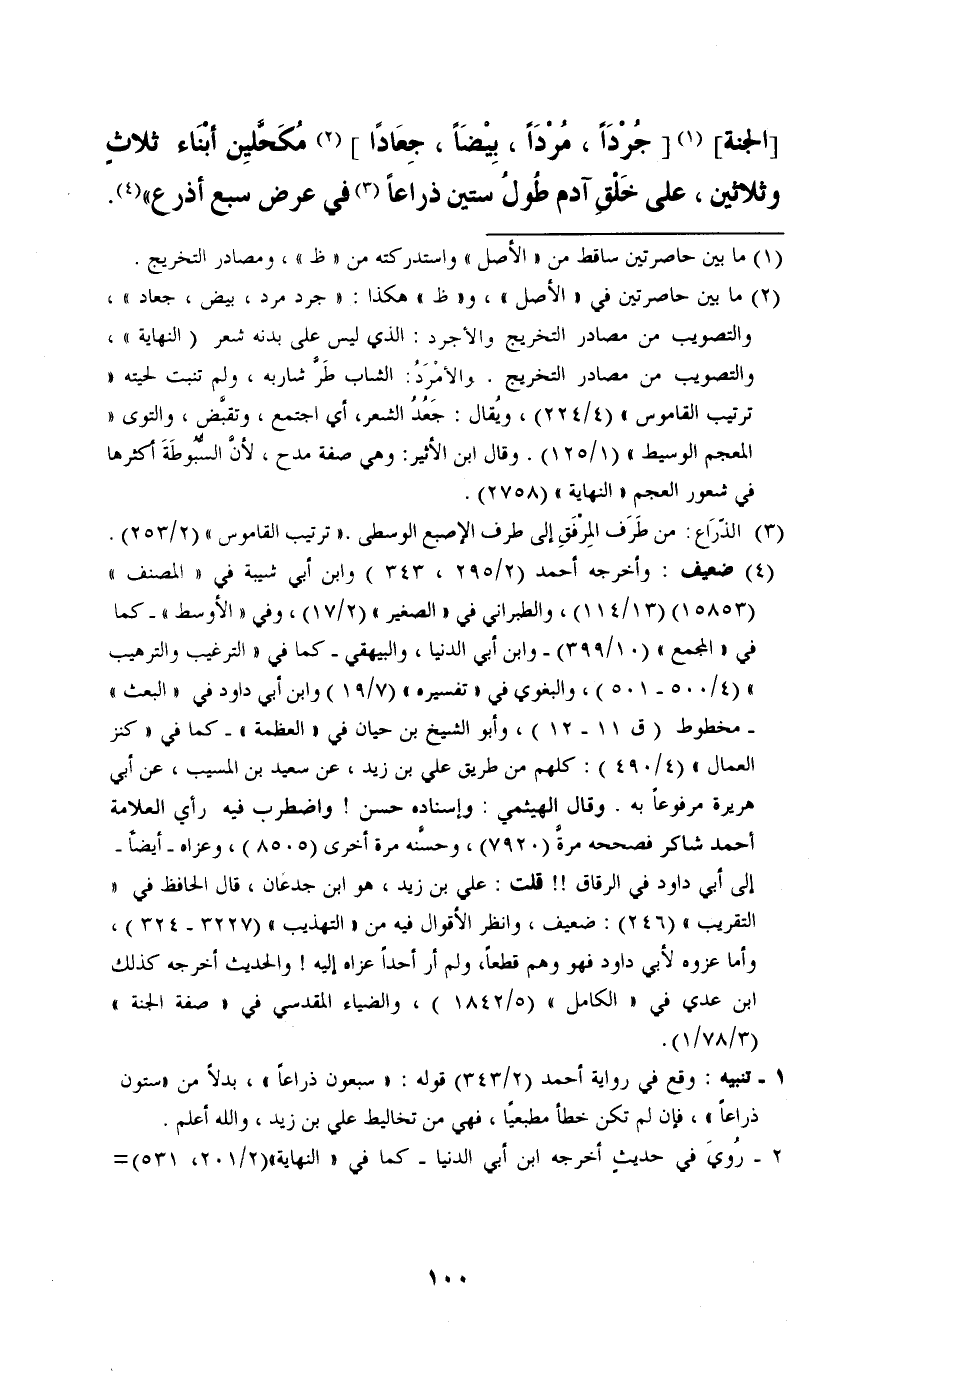 [الجنة] (١) [ جُرْدَاً ، مُرْدَاً ، بِيْضَاً ، جِعَادًا ] (٢) مُكَحَّلِين أبْنَاء ثلاثٍ
وثلاثين ، على خَلْقِ آدم طُولُ ستين ذراعاً (٣) في عرض سبع أذرع»(٤).
(١) ما بين حاصرتين ساقط من « الأصل » واستدركته من « ظ » ، ومصادر التخريج .
(٢) ما بين حاصرتين في « الأصل » ، و« ظ » هكذا : « جرد مرد ، بيض ، جعاد » ،
والتصويب من مصادر التخريج والأجرد : الذي ليس على بدنه شعر ( النهاية » ،
والتصويب من مصادر التخريج . والأمْرَدُ: الشاب طَرَّ شاربه ، ولم تنبت لحيته «
ترتيب القاموس » (٢٢٤/٤) ، ويُقال : جَعُدُ الشعر، أي اجتمع ، وتقبَّض ، والتوى «
المعجم الوسيط » (١٢٥/١) . وقال ابن الأثير: وهي صفة مدح ، لأنَّ السُّبُوطَةَ أكثرها
في شعور العجم « النهاية » (٢٧٥٨) .
(٣) الذّرَاع: من طَرَف المِرْفَقِ إلى طرف الإصبع الوسطى .« ترتيب القاموس » (٢٥٣/٢) .
(٤) ضعيف : وأخرجه أحمد (٢٩٥/٢ ، ٣٤٣ ) وابن أبي شيبة في « المصنف »
(١٥٨٥٣) (١١٤/١٣) ، والطبراني في « الصغير » (١٧/٢) ، وفي « الأوسط » ـ كما
في « المجمع » (٣٩٩/١٠) ـ وابن أبي الدنيا ، والبيهقي ـ كما في « الترغيب والترهيب
» (٥٠٠/٤ ـ ٥٠١ ) ، والبغوي في « تفسيره » (١٩/٧ ) وابن أبي داود في « البعث »
ـ مخطوط ( ق ١١ ـ ١٢ ) ، وأبو الشيخ بن حيان في « العظمة » ـ كما في « كنز
العمال » (٤٩٠/٤ ) : كلهم من طريق علي بن زيد ، عن سعيد بن المسيب ، عن أبي
هريرة مرفوعاً به . وقال الهيثمي : وإسناده حسن ! واضطرب فيه رأي العلامة
أحمد شاكر فصححه مرةً (٧٩٢٠) ، وحسَّنه مرة أخرى (٨٥٠٥ ) ، وعزاه ـ أيضاً ـ
إلى أبي داود في الرقاق !! قلت : علي بن زيد ، هو ابن جدعان ، قال الحافظ في «
التقريب » (٢٤٦) : ضعيف ، وانظر الأقوال فيه من « التهذيب » (٣٢٢٧ ـ ٣٢٤ ) ،
وأما عزوه لأبي داود فهو وهم قطعاً، ولم أر أحداً عزاه إليه ! والحديث أخرجه كذلك
ابن عدي في « الكامل » (١٨٤٢/٥ ) ، والضياء المقدسي في « صفة الجنة »
(١/٧٨/٣).
١ ـ تنبيه : وقع في رواية أحمد (٣٤٣/٢) قوله : « سبعون ذراعاً » ، بدلاً من «ستون
ذراعاً » ، فإن لم تكن خطأ مطبعيًا ، فهي من تخاليط علي بن زيد ، والله أعلم .
٢ ـ رُويَ في حديثٍ أخرجه ابن أبي الدنيا ـ كما في « النهاية»(٢٠١/٢، ٥٣١)=
١٠٠